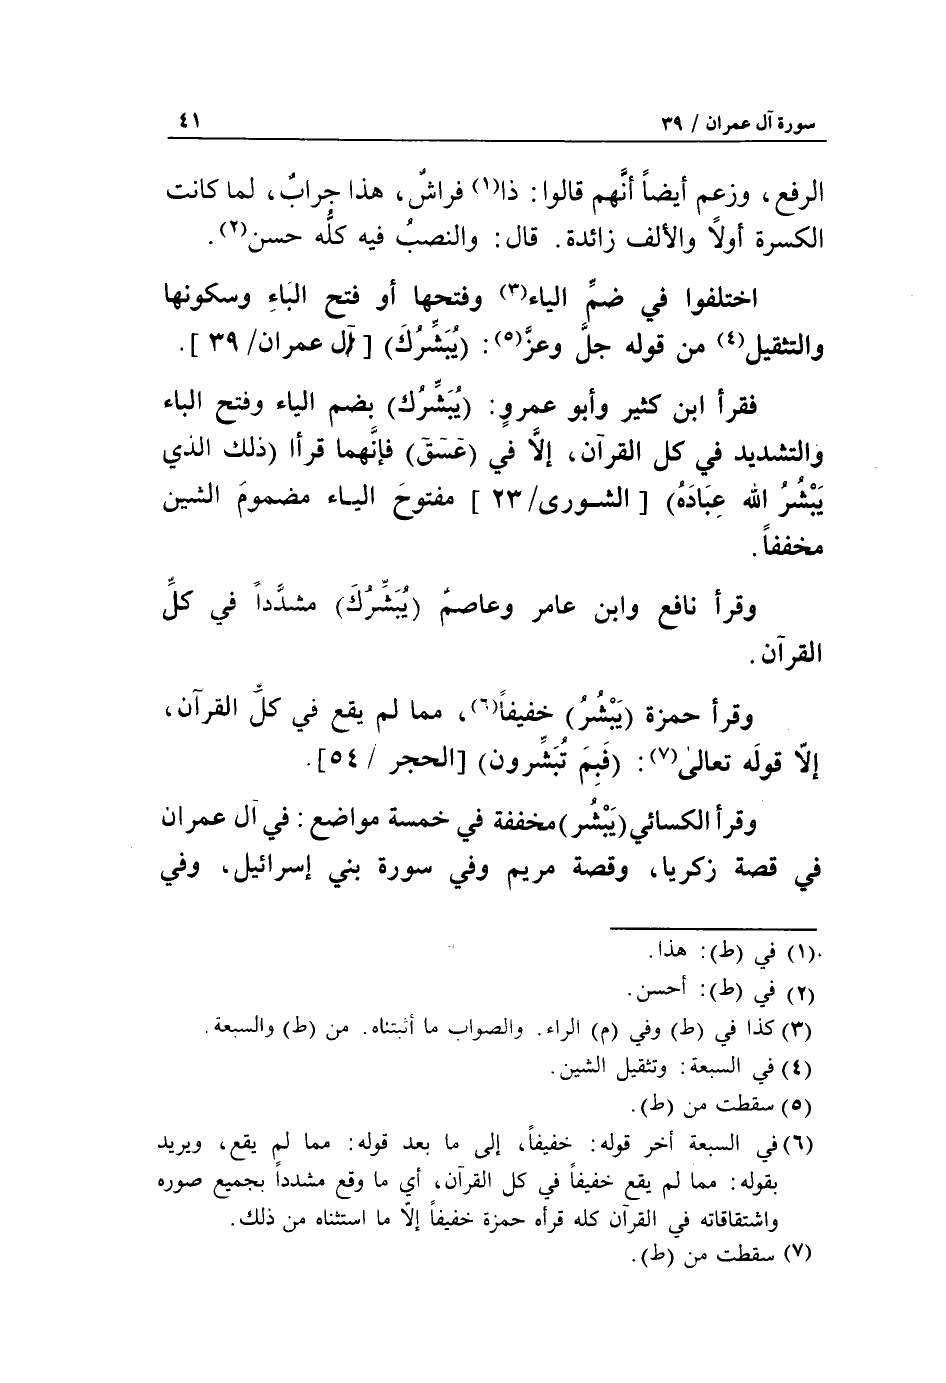 سورة آل عمران / ٣٩
٤١
الرفع، وزعم أيضاً أنَّهم قالوا: ذا(١) فراشٌ، هذا جرابٌ، لما كانت
الكسرة أولاً والألف زائدة. قال: والنصبُ فيه كلُّه حسن(٢).
اختلفوا في ضمِّ الياء(٣) وفتحها أو فتح البَاءِ وسكونها
والتثقيل(٤) من قوله جلَّ وعزَّ(٥): (يُبَشِّرُكَ) [آل عمران/ ٣٩].
فقرأ ابن كثير وأبو عمروٍ: (يُبَشِّرُك) بضم الياء وفتح الباء
والتشديد في كل القرآن، إلاَّ في (عَسَقَ) فإنَّهما قرأا (ذلك الذي
يَبْشُرُ الله عِبَادَهُ) [الشورى/ ٢٣] مفتوحَ الياء مضمومَ الشين
مخففاً.
وقرأ نافع وابن عامر وعاصمُ (يُبَشِّرُكَ) مشدَّداً في كلِّ
القرآن.
وقرأ حمزة (يَبْشُرُ) خفيفاً(٦)، مما لم يقع في كلِّ القرآن،
إلاّ قولَه تعالىٰ(٧): (فَبِمَ تُبَشِّرون) [الحجر / ٥٤].
وقرأ الكسائي (يَبْشُر) مخففة في خمسة مواضع: في آل عمران
في قصة زكريا، وقصة مريم وفي سورة بني إسرائيل، وفي
(١) في (ط): هذا.
(٢) في (ط): أحسن.
(٣) كذا في (ط) وفي (م) الراء. والصواب ما أثبتناه. من (ط) والسبعة.
(٤) في السبعة: وتثقيل الشين.
(٥) سقطت من (ط).
(٦) في السبعة أخر قوله: خفيفاً، إلى ما بعد قوله: مما لم يقع، ويريد
بقوله: مما لم يقع خفيفاً في كل القرآن، أي ما وقع مشدداً بجميع صوره
واشتقاقاته في القرآن كله قرأه حمزة خفيفاً إلاّ ما استثناه من ذلك.
(٧) سقطت من (ط).